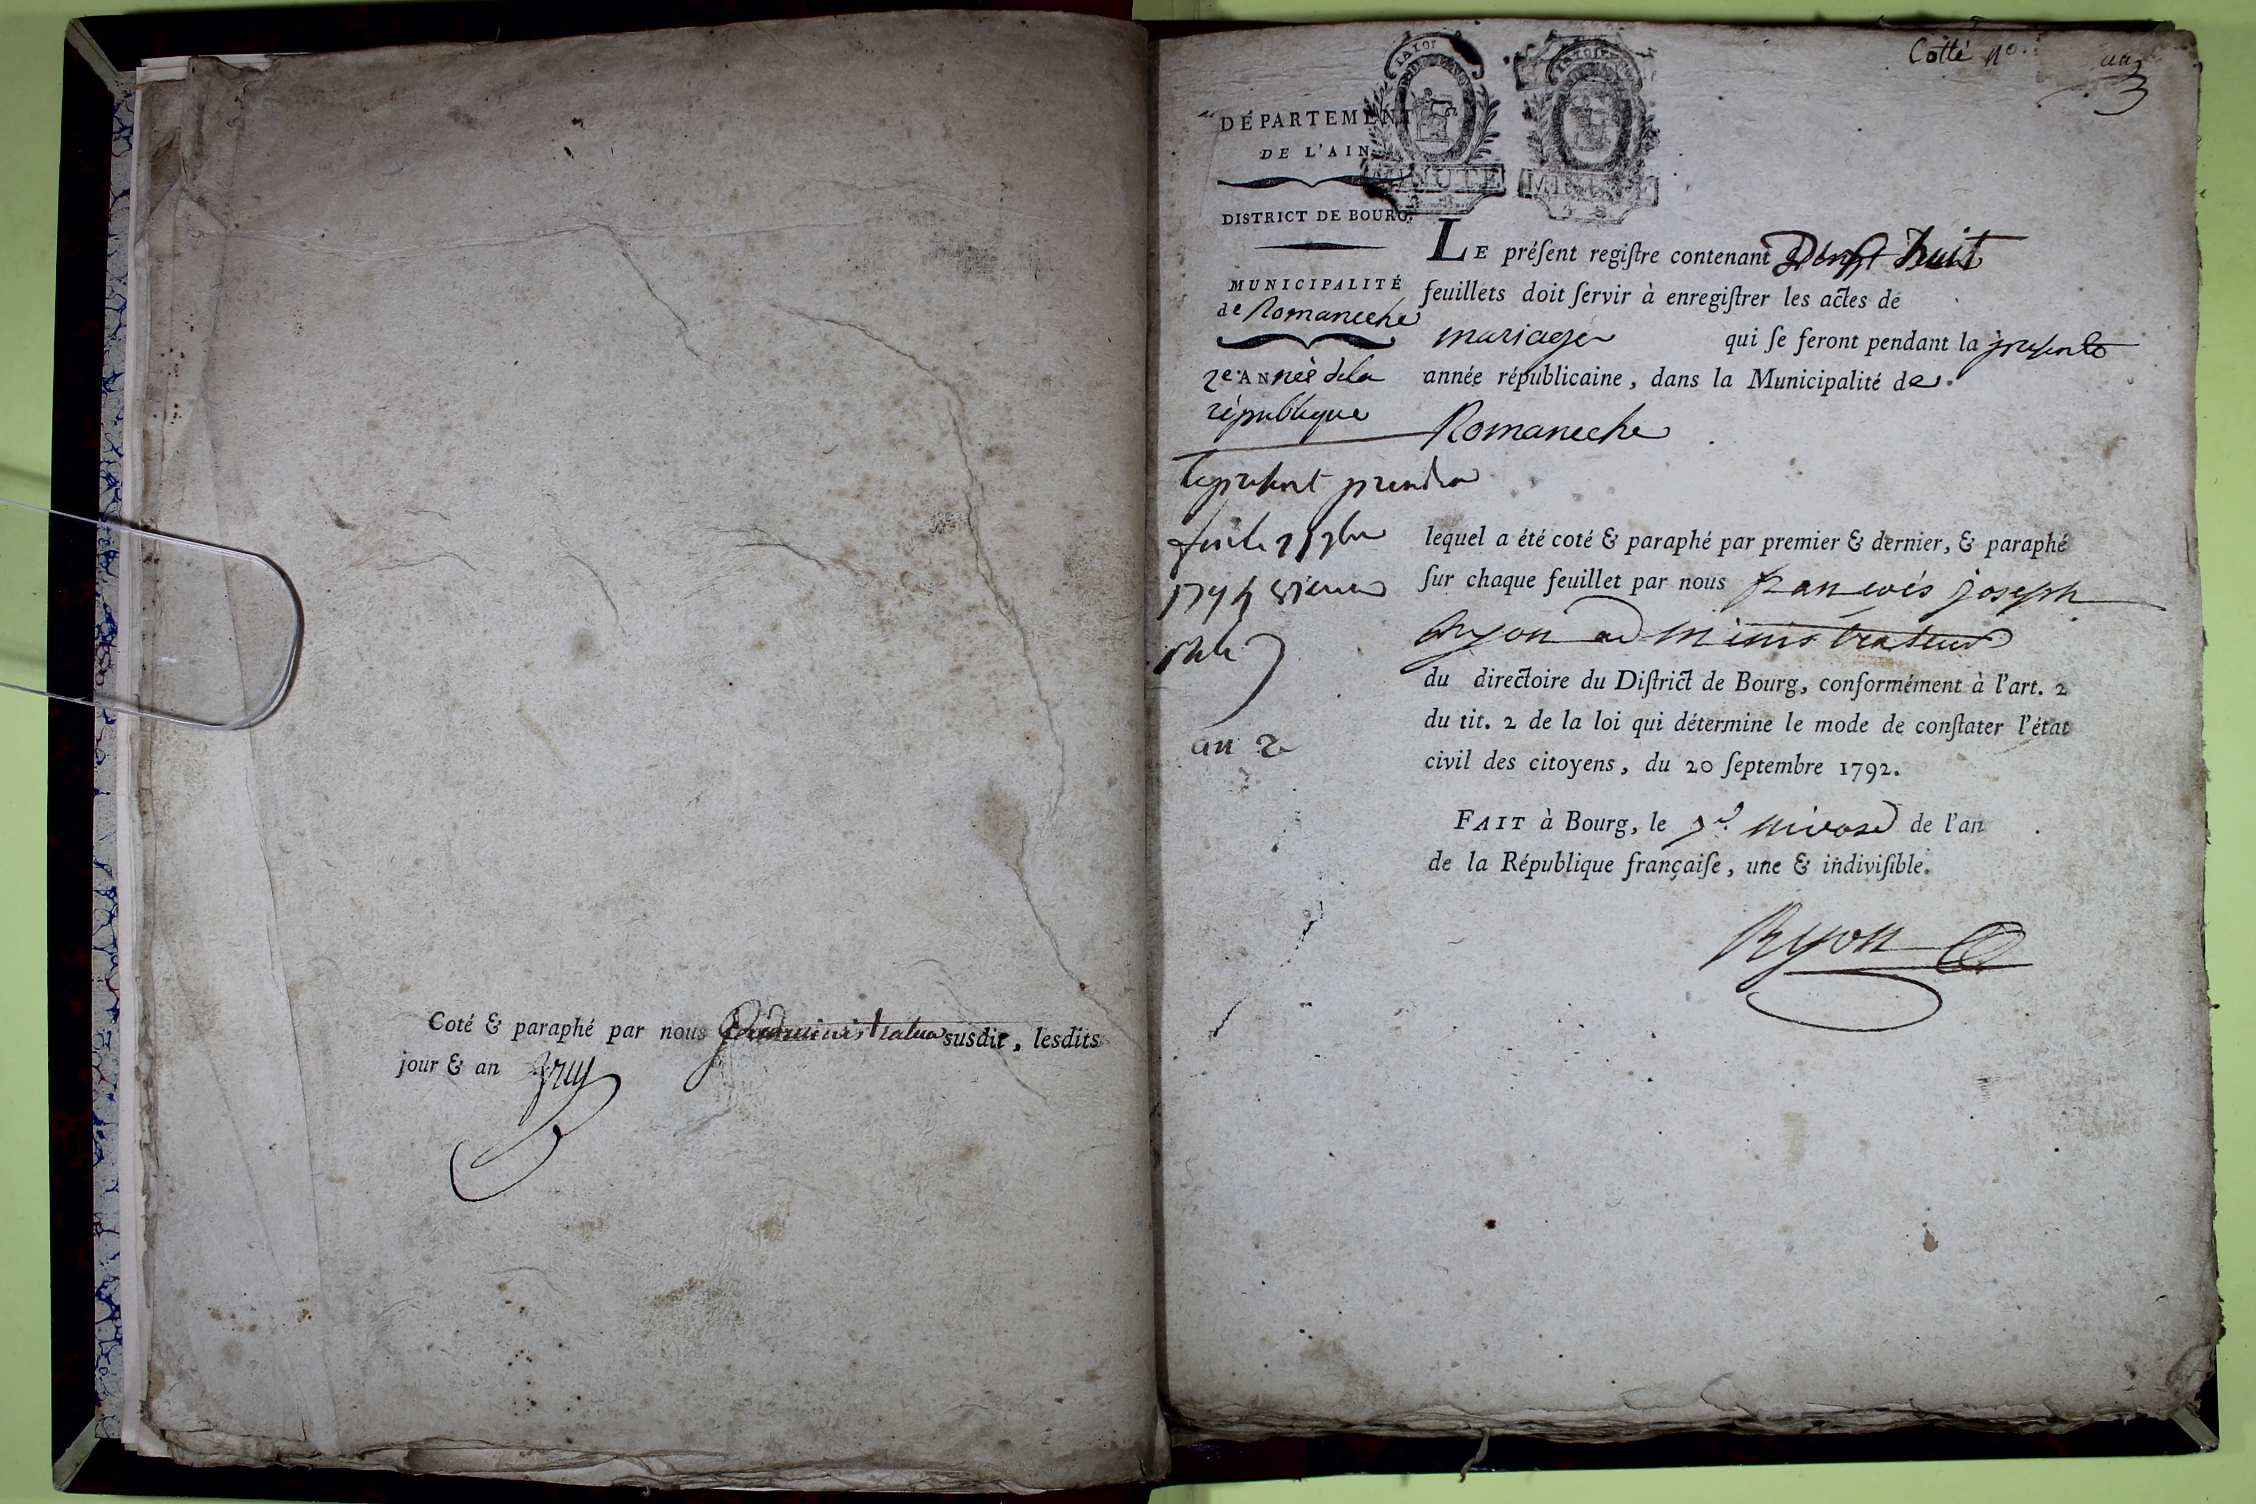 Coté & paraphé par nous administrateur susdit, lesdits
jour & an
Cotté nº.
DÉPARTEMENT
DE L'AIN
DISTRICT DE BOURG
MUNICIPALITÉ
de Romaneche
2e ANnée dela
république
an 2
LE préſent regiſtre contenant huit
feuillets doit ſervir à enregiſtrer les actes de
mariages qui ſe feront pendant la presente
année républicaine, dans la Municipalité de
Romaneche
lequel a été coté & paraphé par premier & dernier, & paraphé
ſur chaque feuillet par nous francois joseph
Ryon administrateur
du directoire du Diſtrict de Bourg, conformément à l'art. 2
du tit. 2 de la loi qui détermine le mode de conſtater l'état
civil des citoyens, du 20 ſeptembre 1792.
FAIT à Bourg, le nivose de l'an
de la République françaiſe, une & indiviſible.
Ryon